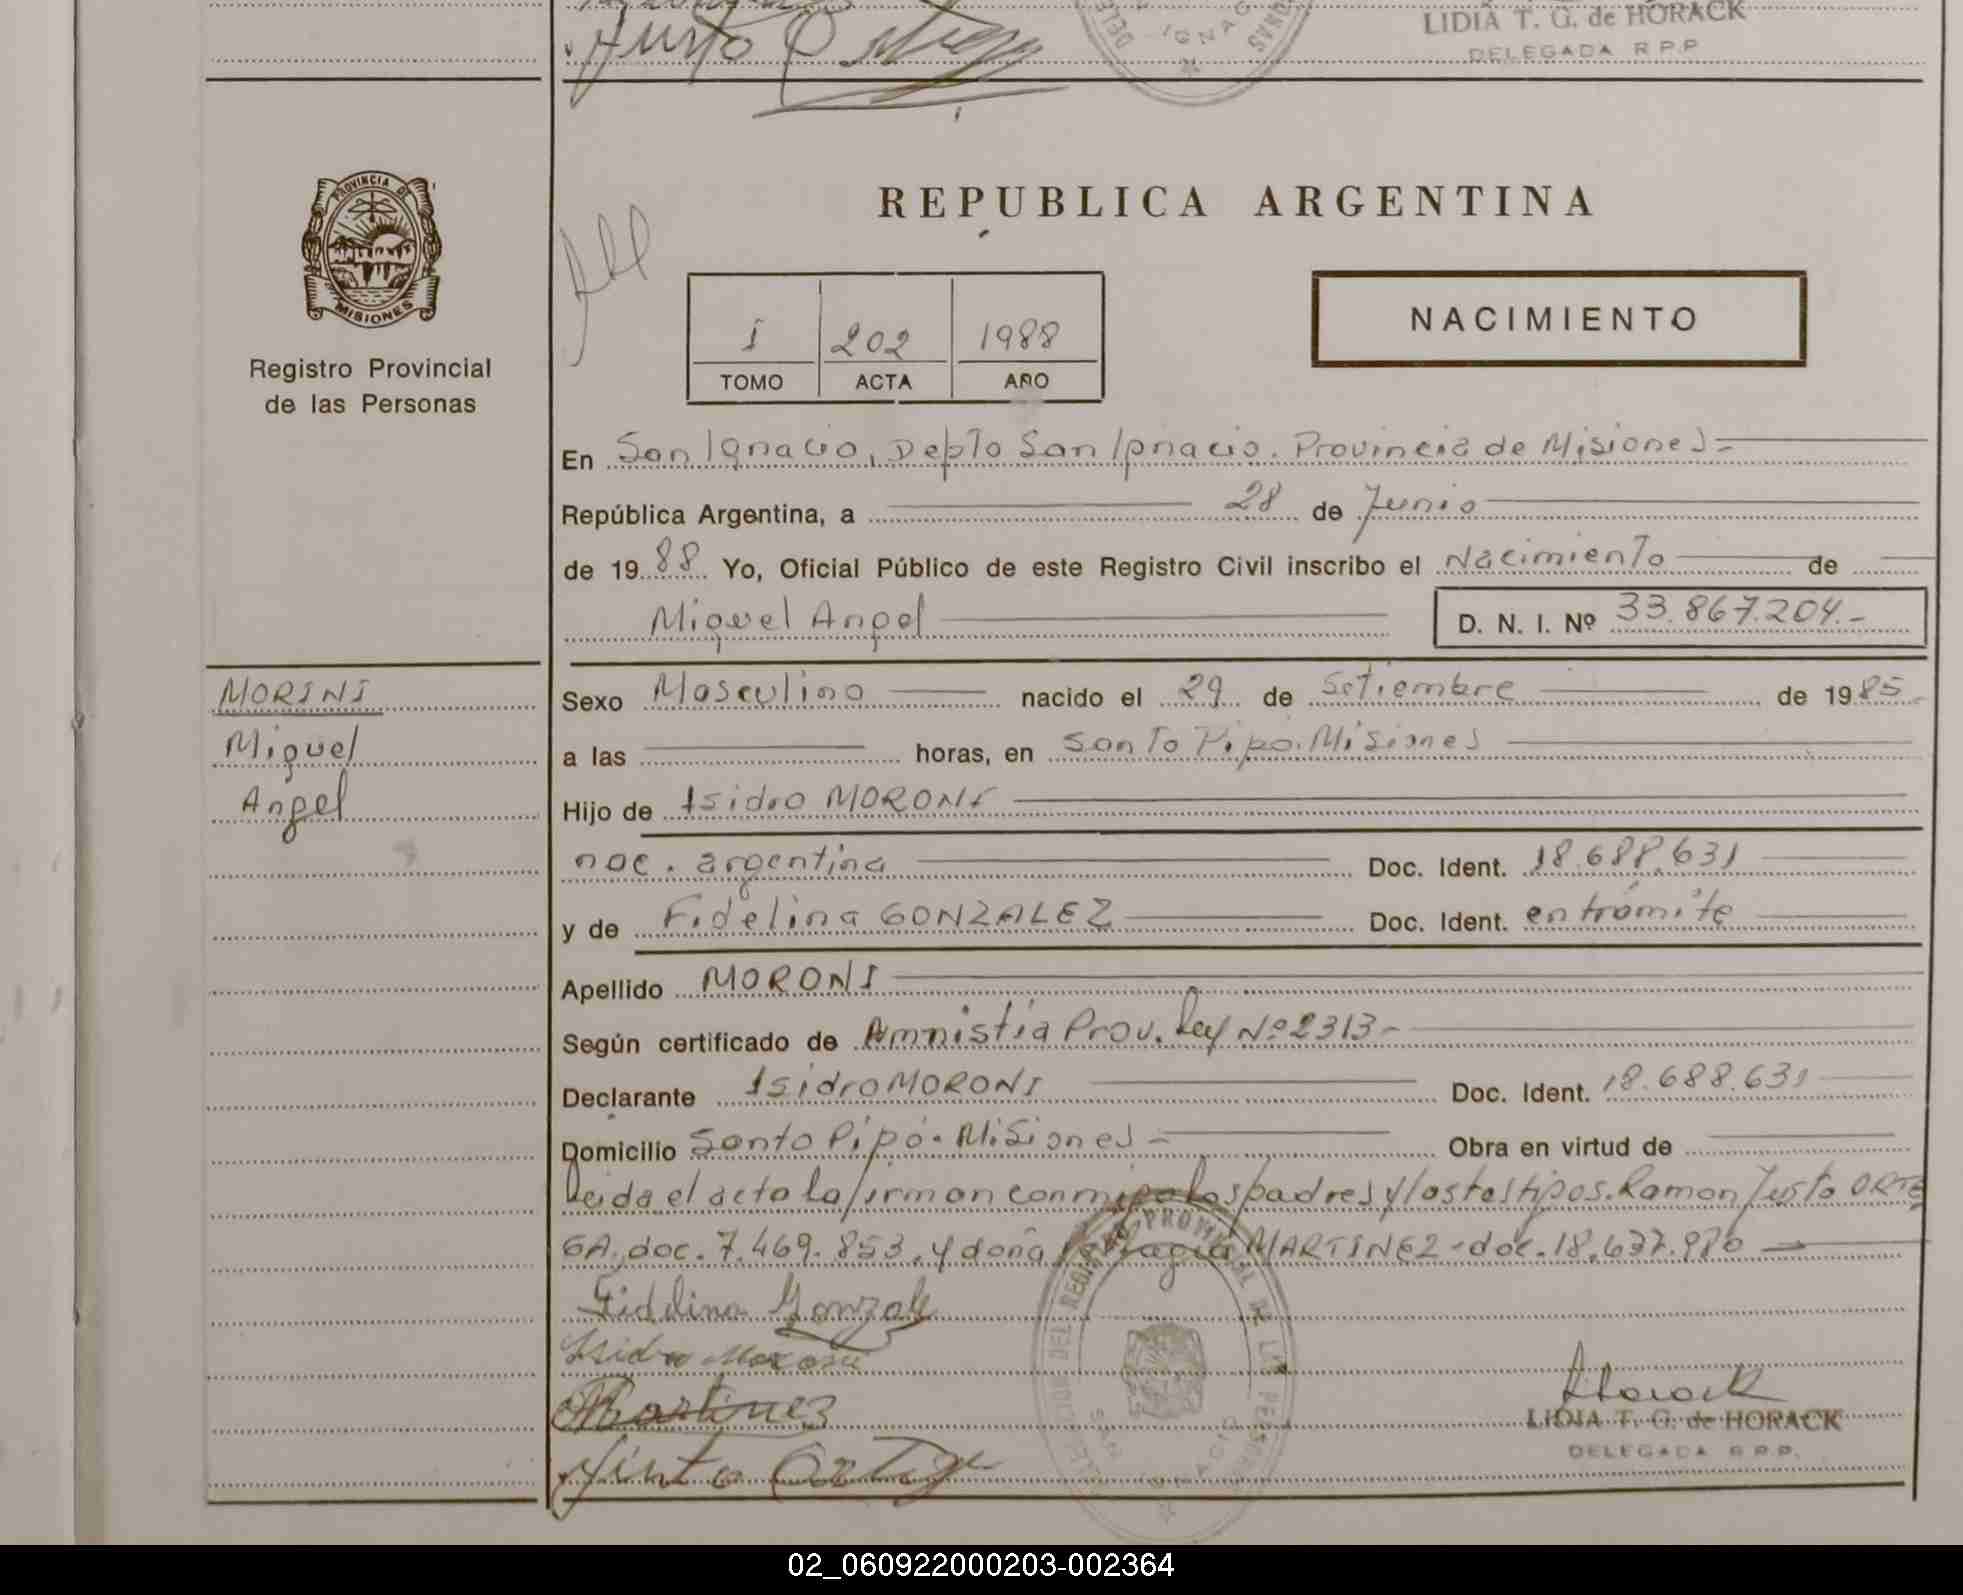 Justo Ortega
LIDIA T. G. de HORACK
DELEGADA R.P.P
PROVINCIA DE
MISIONES
Registro Provincial
de las Personas
REPUBLICA ARGENTINA
NACIMIENTO
1 202 1988
TOMO ACTA AÑO
En San Ignacio, Depto San Ignacio. Provincia de Misiones
República Argentina, a 28 de Junio
de 1988 Yo, Oficial Público de este Registro Civil inscribo el Nacimiento de
Miguel Angel D. N. I. Nº 33.867.204.-
MORINI
Miguel
Angel
Sexo Masculino nacido el 29 de Setiembre de 1985
a las horas, en Santo Pipó. Misiones
Hijo de Isidro MORONI
nac. argentina Doc. Ident. 18.688.631
y de Fidelina GONZALEZ Doc. Ident. en trámite
Apellido MORONI
Según certificado de Amnistía Prov. Ley Nº 2313-
Declarante Isidro MORONI Doc. Ident. 18.688.631
Domicilio Santo Pipó. Misiones Obra en virtud de
Leida el acta la firman conmigo los padres y los testigos. Ramon Justo ORTE
GA, doc. 7.469.853, y doña MARTINEZ - doc. 18.637.980
Fidelina Gonzale
Isidro Moroni
Martinez
Justo Ortega
LIDIA T. G. de HORACK
DELEGADA R.P.P.
02_060922000203-002364